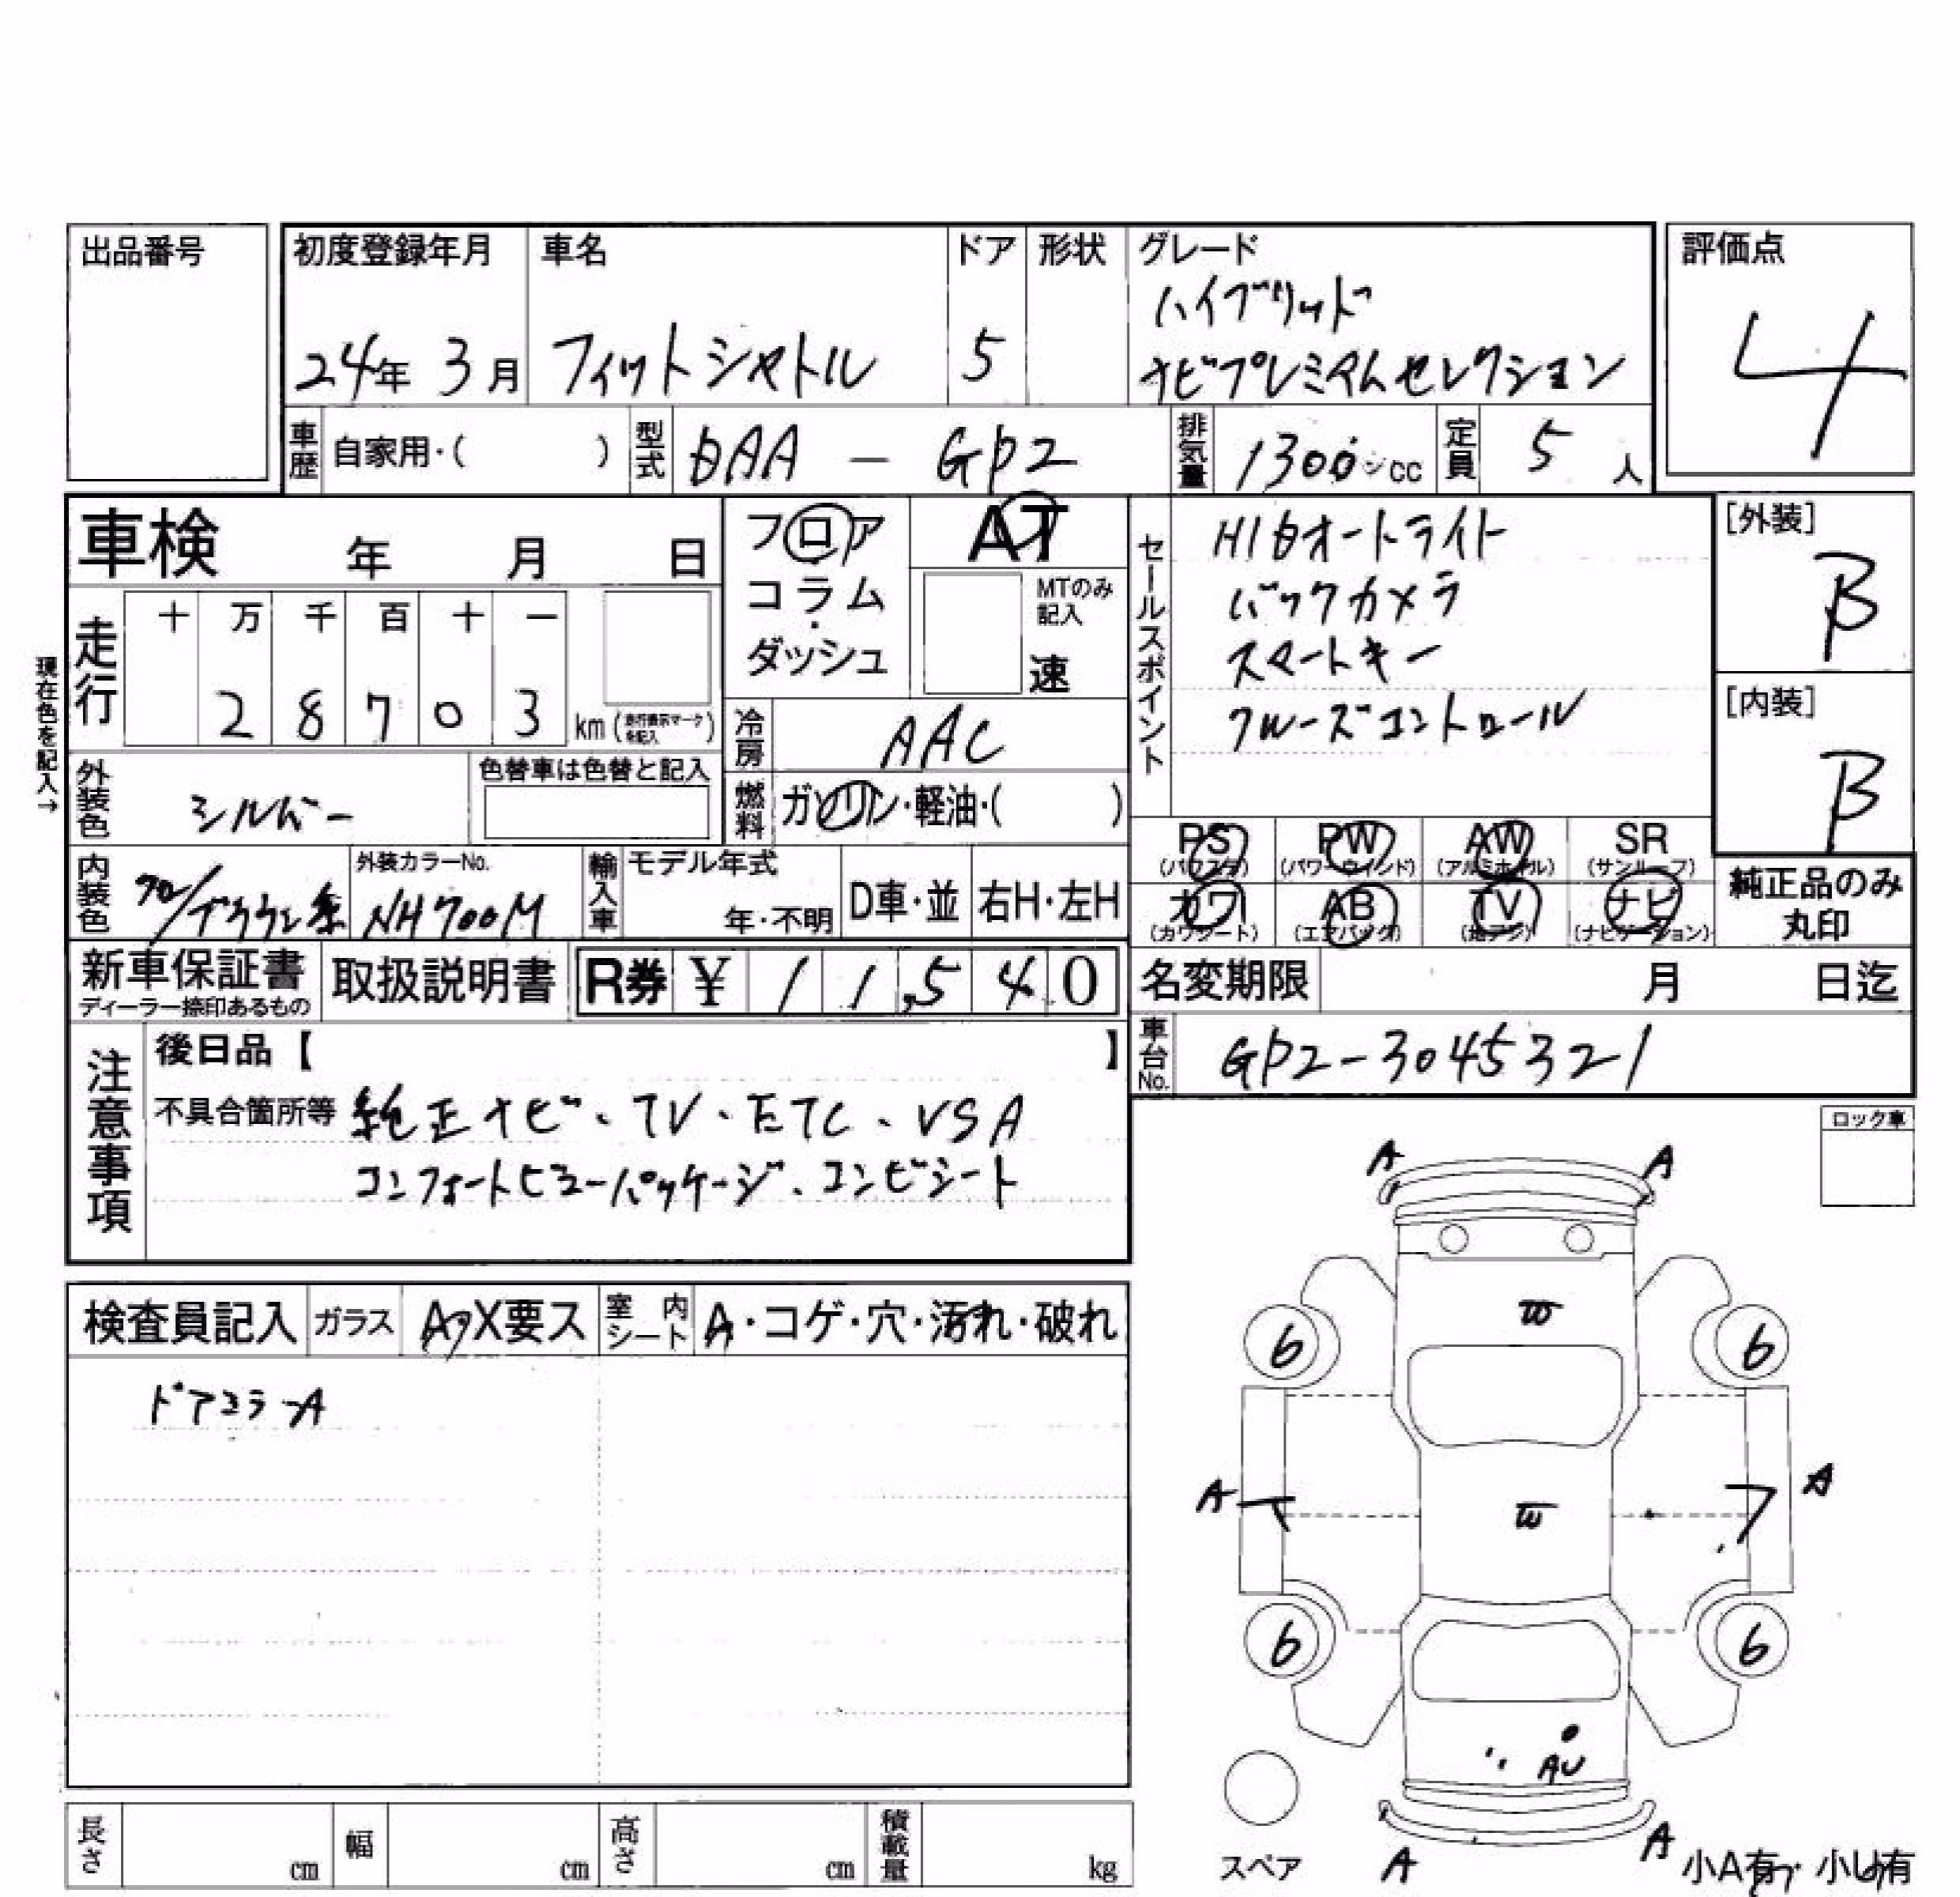 出品番号
初度登録年月 車名 ドア 形状 グレード 評価点
ハイブリッド
24年 3月 フィットシャトル 5 ナビプレミアムセレクション 4
車歴 自家用・( ) 型式 DAA - GP2 排気量 1300cc 定員 5人
車検 年 月 日
フロア AT
コラム・
ダッシュ
MTのみ記入
速
セールスポイント
HIDオートライト
バックカメラ
スマートキー
クルーズコントロール
[外装]
B
[内装]
B
現在色を記入→
走行 十 万 千 百 十 一
2 8 7 0 3 km (走行表示マークを記入)
冷房 AAC
外装色 シルバー 色替車は色替と記入
燃料 ガソリン・軽油・( )
PS PW AW SR
(パワステ) (パワーウィンド) (アルミホイル) (サンルーフ)
カワ AB TV ナビ
(カワシート) (エアバック) (地デジ) (ナビゲーション)
純正品のみ
丸印
内装色 クロ/ブラウン系 外装カラーNo. NH700M 輸入車 モデル年式 年・不明 D車・並 右H・左H
新車保証書 取扱説明書 R券 ¥ 1 1,5 4 0 名変期限 月 日迄
ディーラー捺印あるもの
車台No. GP2-3045321
注意事項
後日品【 】
不具合箇所等 純正ナビ、TV、ETC、VSA
コンフォートビューパッケージ、コンビシート
ロック車
A A
検査員記入 ガラス A・X要ス 室内シート A・コゲ・穴・汚れ・破れ
ドアミラーA
W
6 6
A A
W
6 6
AU
スペア A A 小A有 小U有
長さ cm 幅 cm 高さ cm 積載量 kg